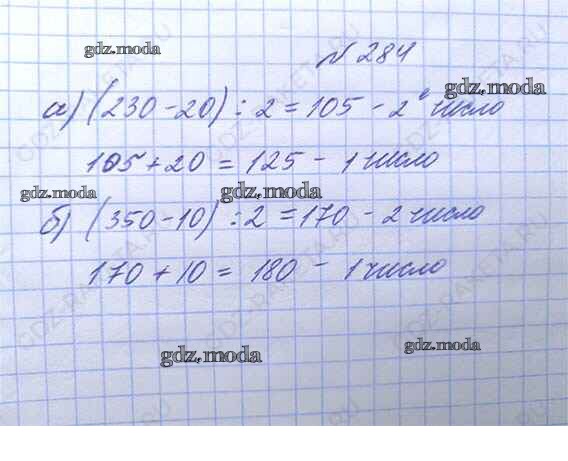 № 284
gdz.moda
gdz.moda
а) (230 - 20) : 2 = 105 - 2 число
105 + 20 = 125 - 1 число
gdz.moda
gdz.moda
б) (350 - 10) : 2 = 170 - 2 число
170 + 10 = 180 - 1 число
gdz.moda
gdz.moda